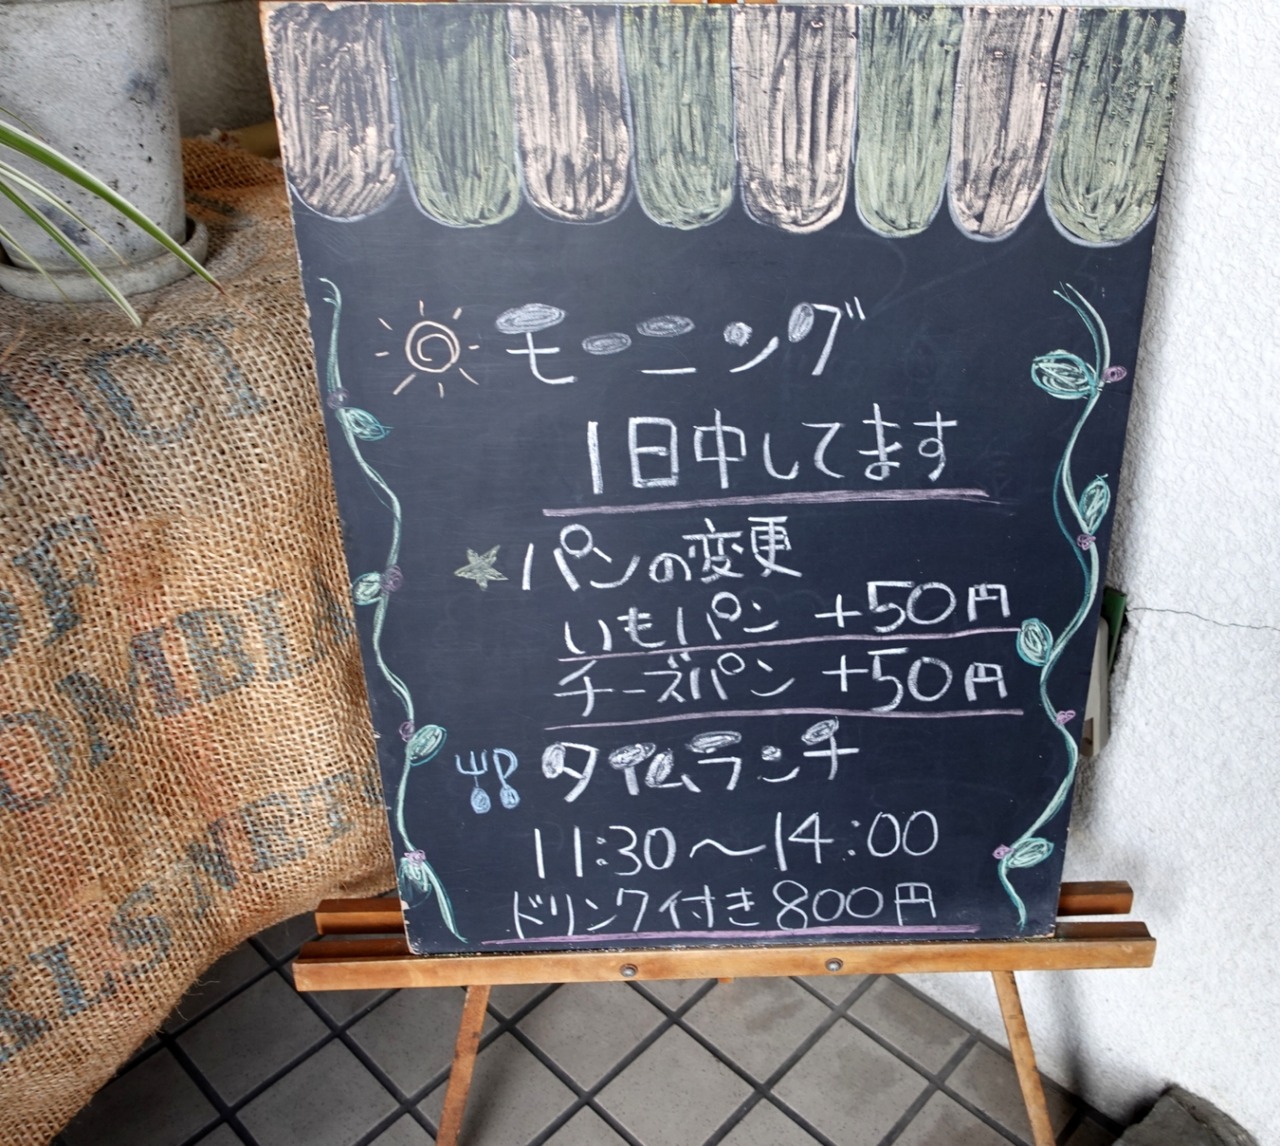 モーニング
1日中してます
パンの変更
いもパン +50円
チーズパン +50円
タイムランチ
11:30～14:00
ドリンク付き800円
OMBI